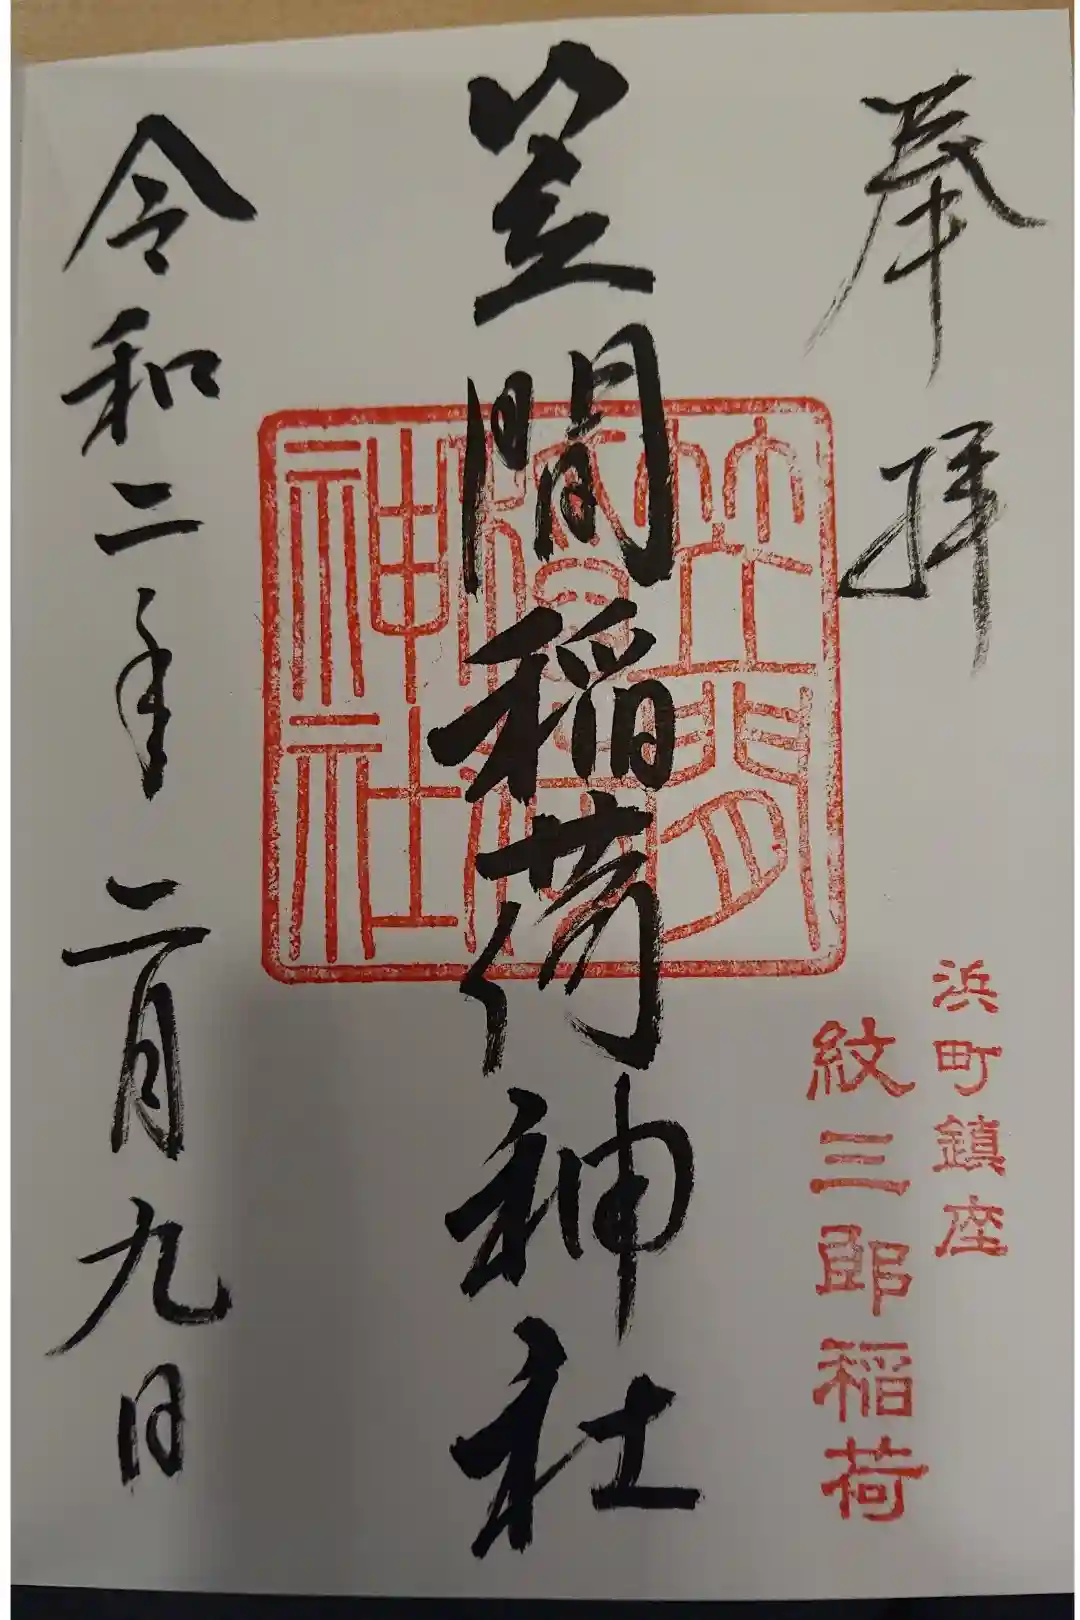 奉拝
浜町鎮座
紋三郎稲荷
笠間稲荷神社
笠間
稲荷
神社
令和二年二月九日